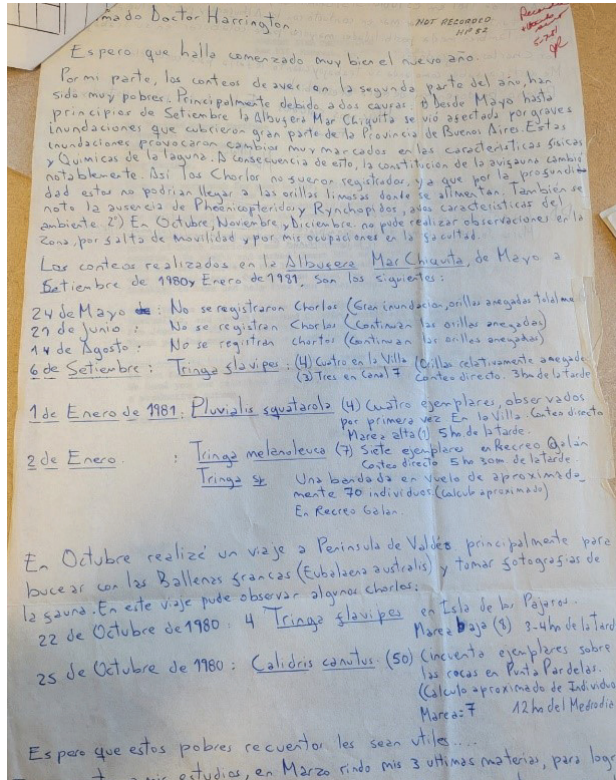 mado Doctor Harrington
NOT RECORDED
HP 82
Espero que halla comenzado muy bien el nuevo año.
Por mi parte, los conteos de aves en la segunda parte del año, han
sido muy pobres. Principalmente debido a dos causas: Desde Mayo hasta
principios de Setiembre la Albufera Mar Chiquita se vió afectada por graves
inundaciones que cubrieron gran parte de la Provincia de Buenos Aires. Estas
inundaciones provocaron cambios muy marcados en las características físicas
y Químicas de la laguna. A consecuencia de esto, la constitición de la avifauna cambió
notablemente. Así los Chorlos no fueron registrados, ya que por la profundi
dad estos no podrian llegar a las orillas limosas donde se alimentan. También se
noto la ausencia de Phoenicopteridos y Rynchopidos, características del
ambiente. 2º) En Octubre, Noviembre y Diciembre no pude realizar observaciones en la
zona, por falta de movilidad y por mis ocupaciones en la facultad.
Los conteos realizados en la Albufera Mar Chiquita, de Mayo a
Setiembre de 1980 y Enero de 1981, son los siguientes:
24 de Mayo : No se registraron Chorlos (Gran inundacion, orillas anegadas
de Junio : No se registran Chorlos (Continuan las orillas anegadas)
14 de Agosto : No se registran chorlos (Continuan las orillas anegadas)
6 de Setiembre : Tringa flavipes : (4) Cuatro en la Villa (Orillas relativamente anegade
(3) Tres en Canal 7 Conteo directo. 3hs de la tarde
1 de Enero de 1981: Pluvialis squatarola (4) Cuatro ejemplares, observados
por primera vez En la Villa. Conteo directo
Marea alta (1) 5 hs. de la tarde.
2 de Enero : Tringa melanoleuca (7) Siete ejemplares en Recreo Galán
Conteo directo 5 hs 30m de la tarde.
Tringa sp Una bandada en vuelo de aproximada_
mente 70 individuos (calculo aproximado)
En Recreo Galan.
En Octubre realizé un viaje a Peninsula de Valdés principalmente para
bucear con las Ballenas francas (Eubalaena australis) y tomar fotografias de
la fauna. En este viaje pude observar algunos chorlos:
22 de Octubre de 1980 : 4 Tringa flavipes en Isla de los Pájaros.
Marea baja (8) 3-4hs de la tard
25 de Octubre de 1980 : Calidris canutus (50) Cincuenta ejemplares sobre
las rocas en Punta Pardelas.
(Calculo aproximado de Individuo
Marea: 7 12 hs del Mediodia
Espero que estos pobres recuentos les sean utiles....
mis estudios, en Marzo rindo mis 3 ultimas materias, para